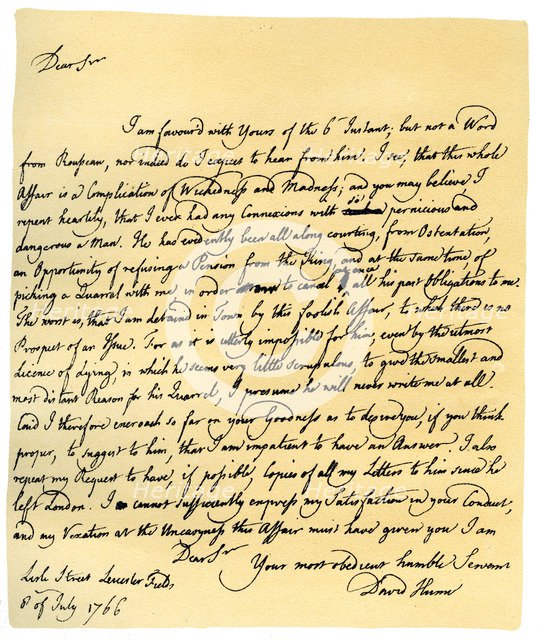 Dear Sir
I am favour'd with Yours of the 6th Instant; but not a Word
from Rousseau, nor indeed do I expect to hear from him. I see, that this whole
Affair is a Complication of Wickedness and Madness; and you may believe, I
repent heartily, that I ever had any Connexions with so pernicious and
dangerous a Man. He has evidently been all along courting, from Ostentation,
an Opportunity of refusing a Pension from the King, and at the same time of
picking a Quarrel with me, in order to cancel at once all his past Obligations to me.
The worst is, that I am detaind in Town by this foolish Affair, to which there is no
Prospect of an Issue. For as it is utterly impossible for him, even by the utmost
Licence of Lying, in which he seems very little scrupulous, to give the smallest and
most distant Reason for his Quarrel, I presume he will never write me at all.
Coud I therefore encroach so far on your Goodness as to desire you, if you think
proper, to suggest to him, that I am impatient to have an Answer. I also
repeat my Request to have, if possible, Copies of all my Letters to him since he
left London. I cannot sufficiently express my Satisfaction in your Conduct,
and my Vexation at the Uneasyness this Affair must have given you I am
Dear Sir
Your most obedient humble Servant
David Hume
Lisle Street Leicester Fields
8th of July 1766
Heritage Heritage